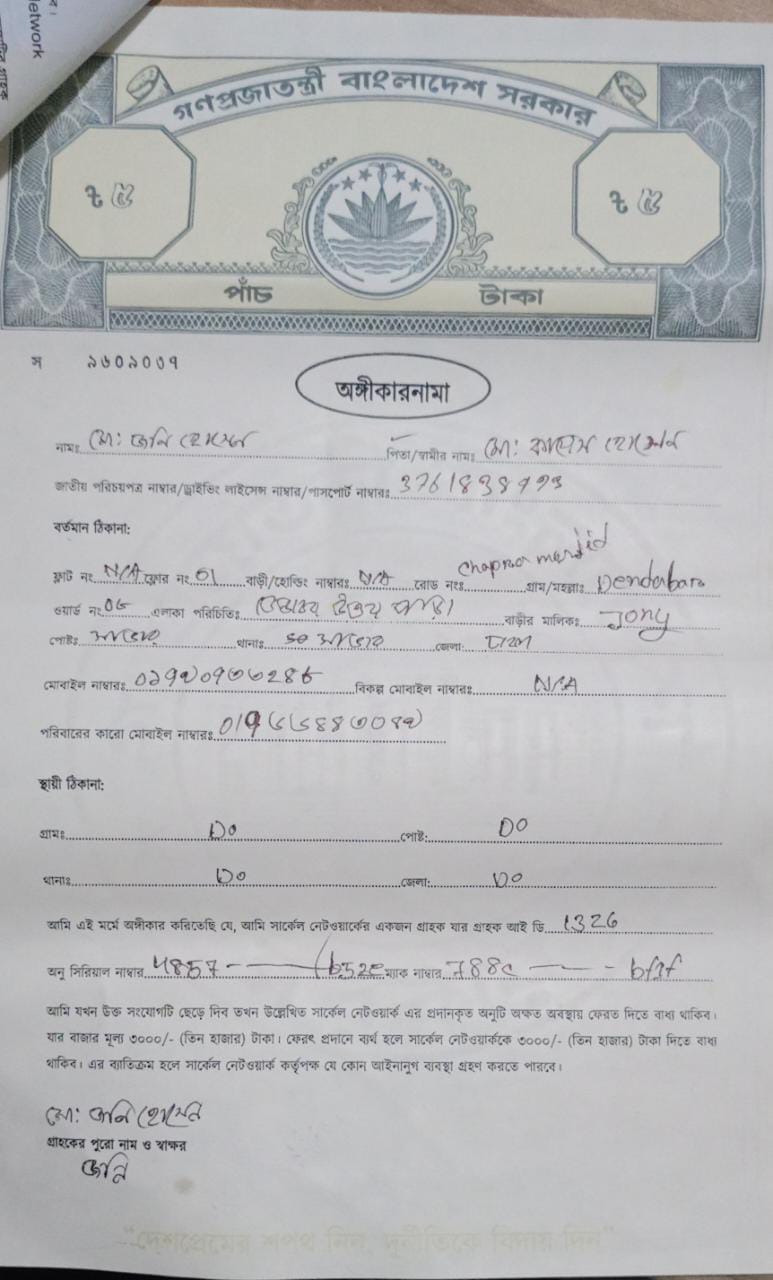 etwork
গণপ্রজাতন্ত্রী বাংলাদেশ সরকার
৳ ৫ ৳ ৫
পাঁচ টাকা
স ৯৬০৯০৩৭
অঙ্গীকারনামা
নামঃ মো: জনি হোসেন পিতা/স্বামীর নামঃ মো: কালাম হোসেন
জাতীয় পরিচয়পত্র নাম্বার/ড্রাইভিং লাইসেন্স নাম্বার/পাসপোর্ট নাম্বারঃ
বর্তমান ঠিকানা:
ফ্লাট নং N/A ফ্লোর নং 01 বাড়ী/হোল্ডিং নাম্বারঃ N/A রোড নংঃ Chapra masjid গ্রাম/মহল্লাঃ Dendabar
ওয়ার্ড নং 05 এলাকা পরিচিতিঃ বাড়ীর মালিকঃ Jony
পোষ্টঃ সাভার থানাঃ সাভার জেলা: ঢাকা
মোবাইল নাম্বারঃ বিকল্প মোবাইল নাম্বারঃ N/A
পরিবারের কারো মোবাইল নাম্বারঃ
স্থায়ী ঠিকানা:
গ্রামঃ Do পোষ্ট: Do
থানাঃ Do জেলা: Do
আমি এই মর্মে অঙ্গীকার করিতেছি যে, আমি সার্কেল নেটওয়ার্কের একজন গ্রাহক যার গ্রাহক আই ডি 1326
অনু সিরিয়াল নাম্বার 4857 - b32e ম্যাক নাম্বার 788c - bf1f
আমি যখন উক্ত সংযোগটি ছেড়ে দিব তখন উল্লেখিত সার্কেল নেটওয়ার্ক এর প্রদানকৃত অনুটি অক্ষত অবস্থায় ফেরত দিতে বাধ্য থাকিব।
যার বাজার মূল্য ৩০০০/- (তিন হাজার) টাকা। ফেরৎ প্রদানে ব্যর্থ হলে সার্কেল নেটওয়ার্ককে ৩০০০/- (তিন হাজার) টাকা দিতে বাধ্য
থাকিব। এর ব্যতিক্রম হলে সার্কেল নেটওয়ার্ক কর্তৃপক্ষ যে কোন আইনানুগ ব্যবস্থা গ্রহণ করতে পারবে।
মো: জনি হোসেন
গ্রাহকের পুরো নাম ও স্বাক্ষর
জনি
"দেশপ্রেমের শপথ নিন, দুর্নীতিকে বিদায় দিন"